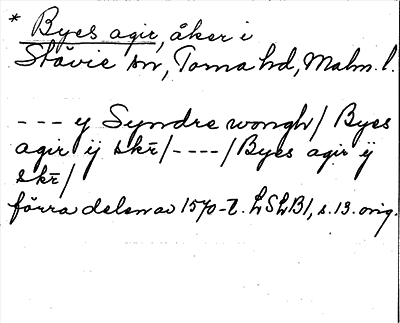 * Byes agir, åker i
Stävie sn, Torna hd, Malm. l.
--- y Syndre wongh/ Byes
agir ij skr̄/----/Byes agir ij
skr̄/
förra delen av 1570-t. LSLB1, s. 13. orig.